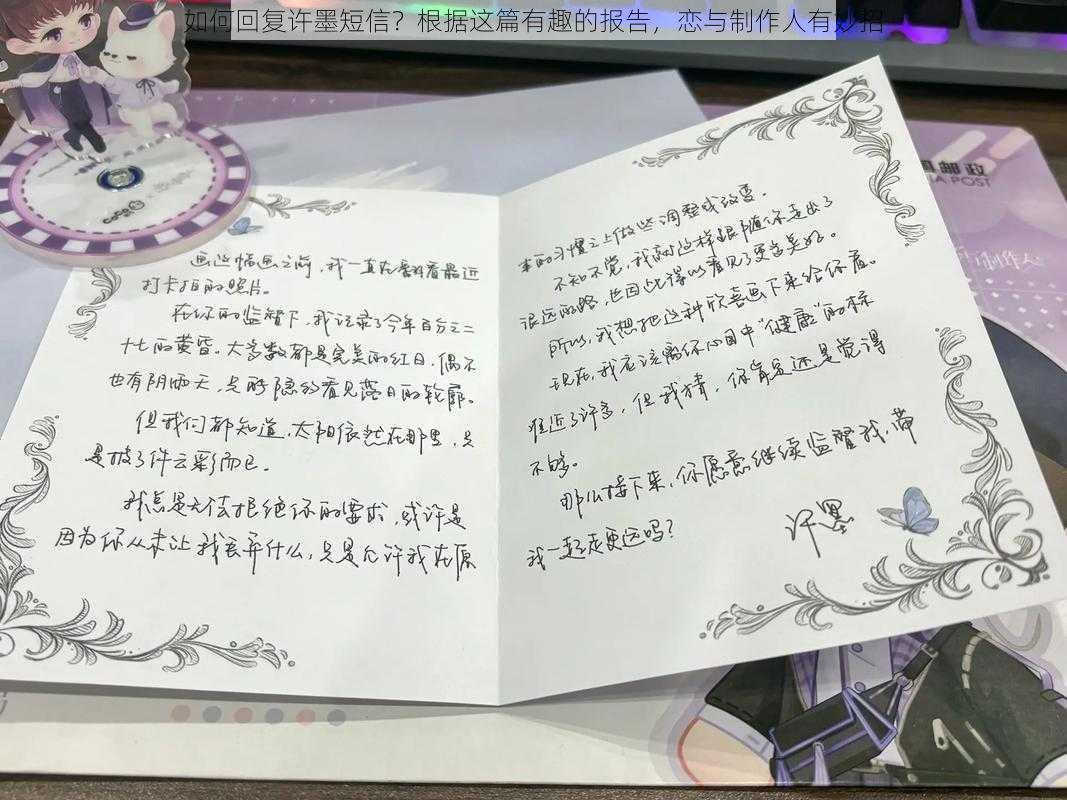 如何回复许墨短信？根据这篇有趣的报告，恋与制作人有妙招
画这幅画之前，我一直在看最近
打卡拍的照片。
在你的监督下，我记录了今年百分之二
十七的黄昏。大多数都是完美的红日，偶尔
也有阴雨天，只能隐约看见落日的轮廓。
但我们都知道，太阳依然在那里，只
是披了件云彩而已。
我总是无法拒绝你的要求，或许是
因为你从未让我丢弃什么，只是允许我在原
本的习惯之上做些调整或改变。
不知不觉，我就这样跟随你走出了
很远的路，也因此得以看见了更多美好。
所以，我想把这种欣喜画下来给你看。
现在，我应该离你心目中“健康”的标
准近了许多，但我猜，你肯定还是觉得
不够。
那么接下来，你愿意继续监督我，带
我一起走更远吗？
许墨
邮政
POST
制作人